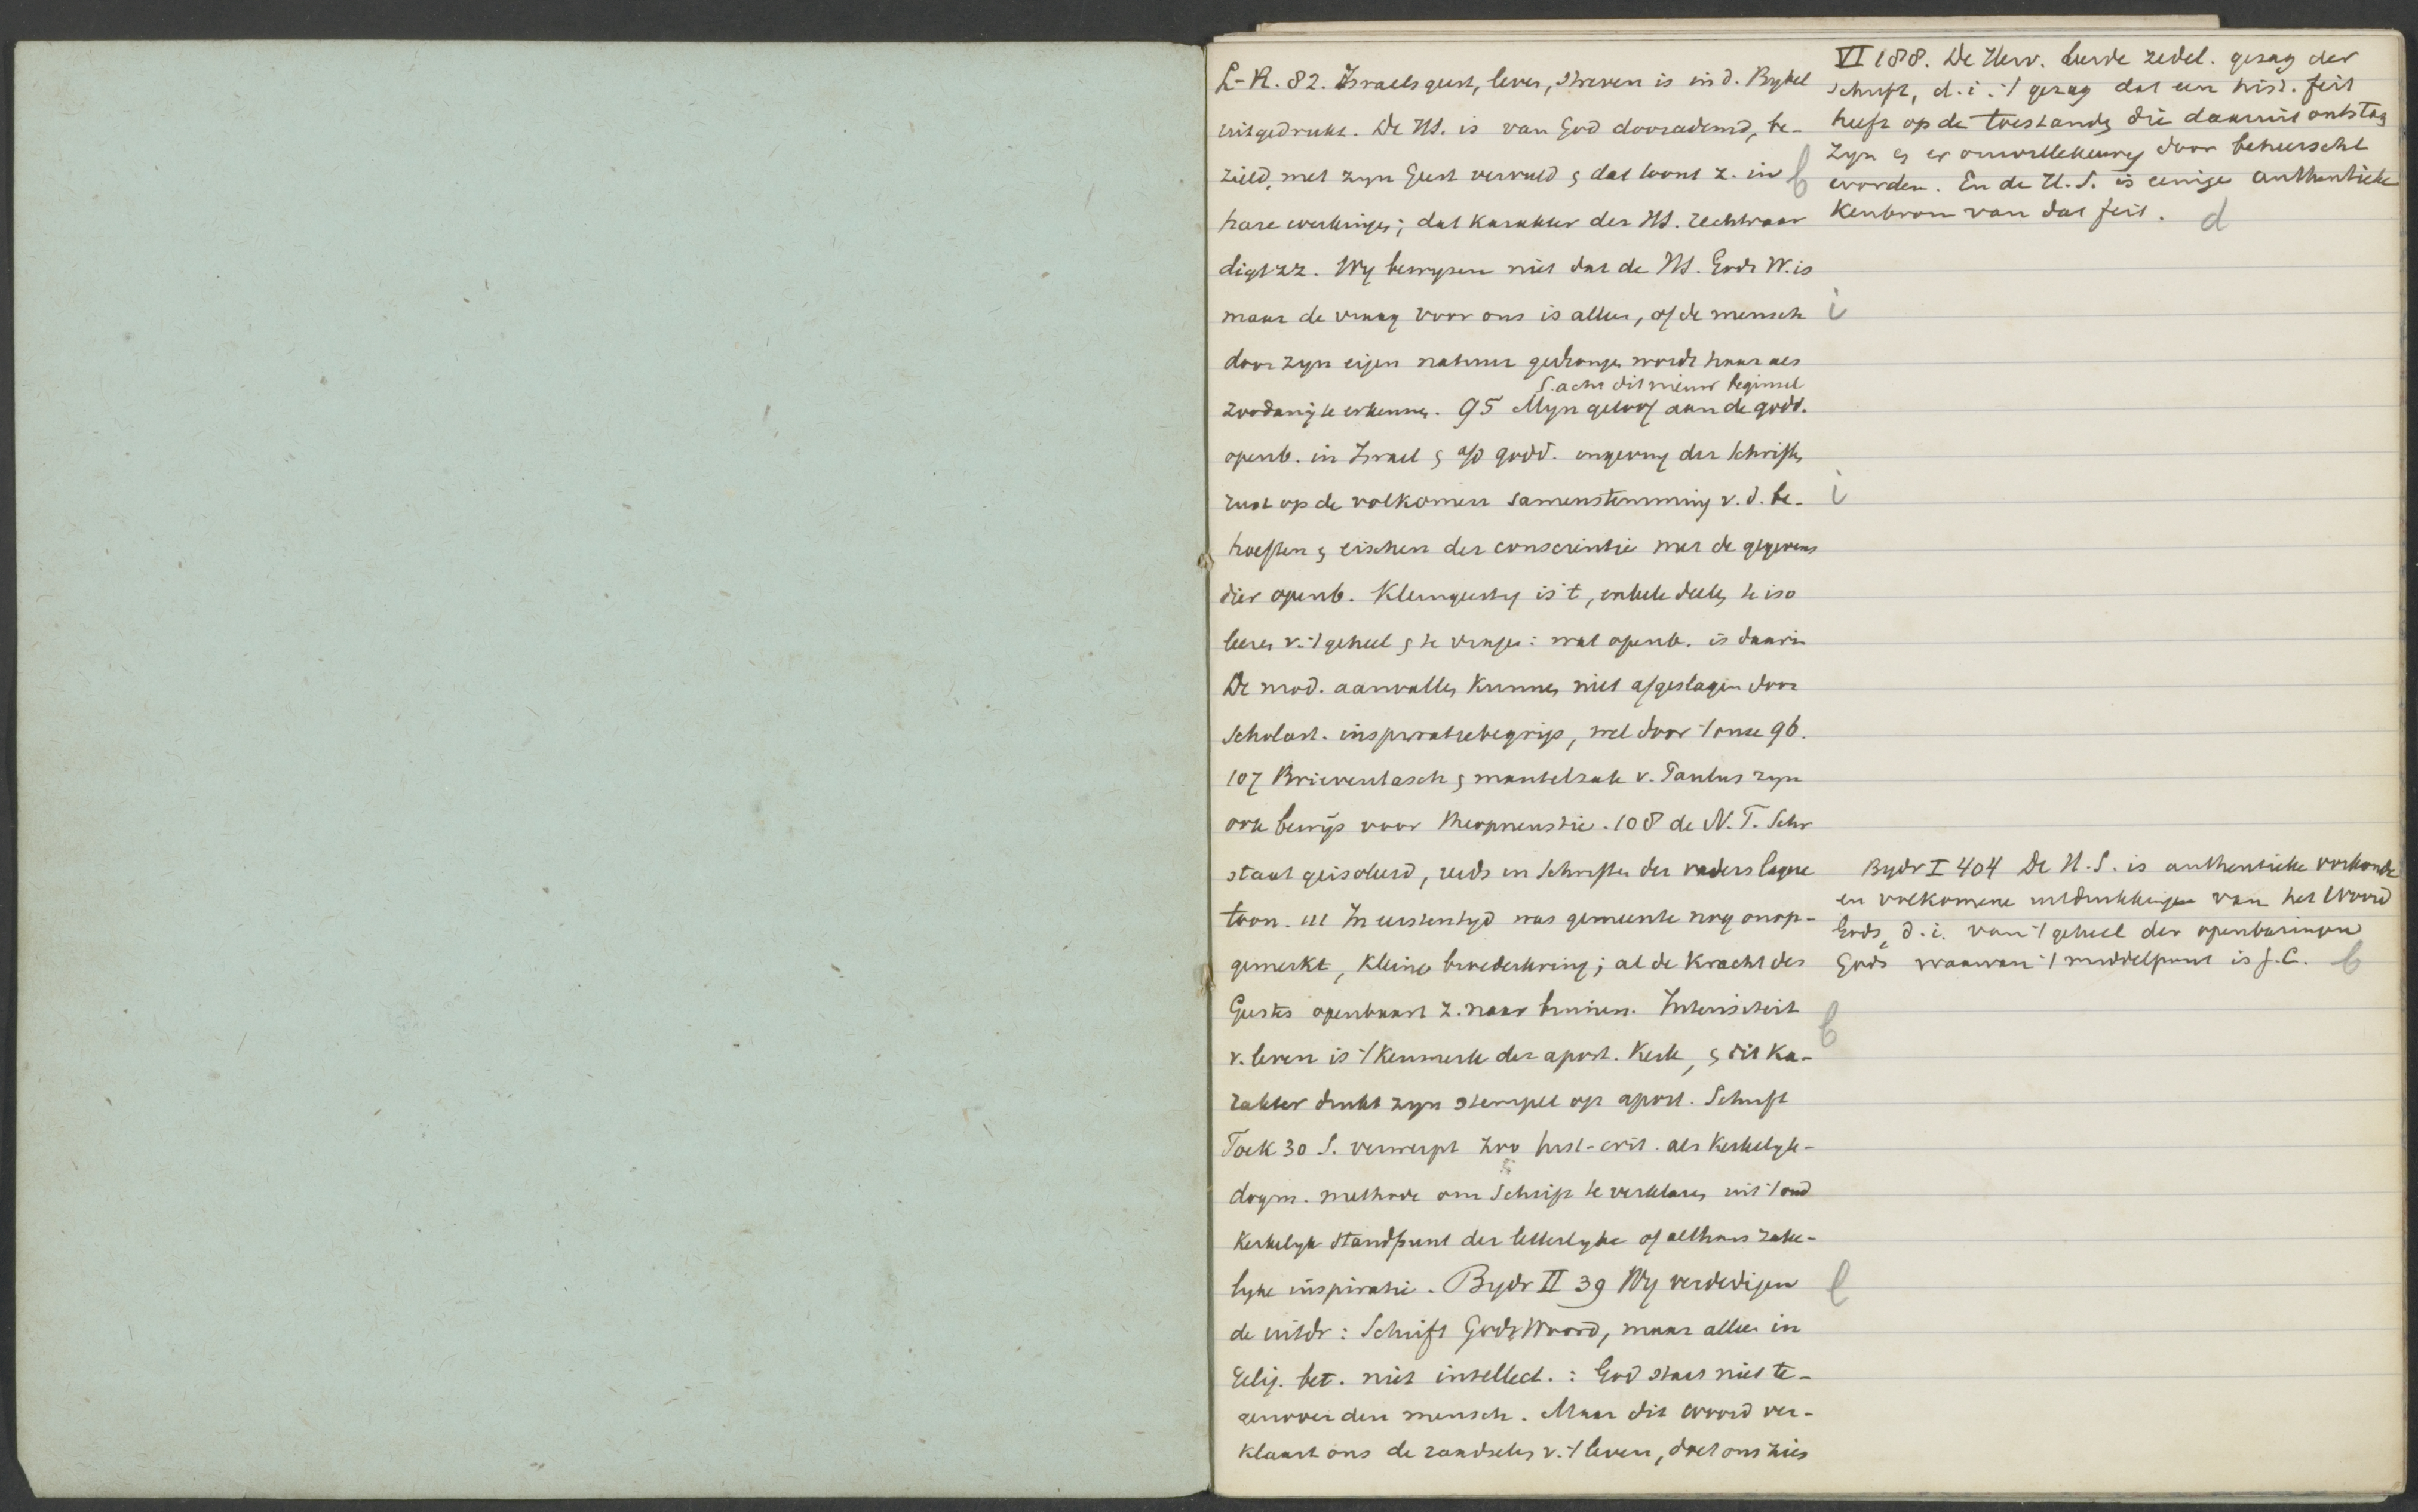 L-R. 82. Israels geest, leven, streven is in d. Bybel
uitgedrukt. De HS. is van God doorademd, be-
zield, met zyn Geest vervuld & dat toont z. in
hare werkingen; dat karakter der HS. rechtvaar
digt zz. Wy bewyzen niet dat de HS. Gods W. is
maar de vraag voor ons is alleen, of de mensch
door zyn eigen natuur gedrongen wordt haar als
S. acht dit nieuw beginsel
zoodanig te erkennen. 95 Myn geloof aan de godd.
openb. in Israel & a/d godd. ingeving der Schriften
rust op de volkomen samenstemming v. d. be-
hoeften & eischen der conscientie met de gegevens
dier openb. Kleingeestig is 't, enkele deelen te iso
leeren v. 't geheel & te vragen: wat openb. is daarin
De mod. aanvallen kunnen niet afgeslagen door
Scholast. inspiratiebegrip, wel door 't onze 96.
107 Brieventasch & mantelzak v. Paulus zyn
ook bewijs voor theopneustie. 108 de N.T. Schr
staat geisoleerd, reeds en Schriften der vaders lagere
toon. 111 In eersten tyd was gemeente nog onop-
gemerkt, kleine broederkring; al de kracht des
Geestes openbaart z. naar binnen. Intensiteit
v. leven is 't kenmerk der apost. Kerk, & dit ka-
rakter drukt zyn stempel op apost. Schrift
Toek 30 S. verwerpt zoo hist-crit. als kerkelyk-
dogm. methode om Schrift te verklaren uit 't oud
kerkelyk standpunt der letterlyke of althans zake-
lyke inspiratie. Bydr II 39 Wy verdedigen
de uitdr: Schrift Gods Woord, maar alleen in
relig. bet. niet intellect.: God staat niet te-
genover den mensch. Maar dit woord ver-
klaart ons de raadselen v. 't leven, doet ons zien
b
i
i
b
b
VI 188. De Herv. leerde zedel. gezag der
Schrift, d. i. 't gezag dat een hist. feit
heeft op de toestanden die daaruit ontstaan
zyn & er onwillekeurig door beheerscht
worden. En de H.S. is eenige authentieke
Kenbron van dat feit. d
Bydr I 404 De H.S. is authentieke oorkonde
en volkomene uitdrukkingen van het Woord
Gods, d. i. van 't geheel der openbaringen
Gods waarvan 't middelpunt is J.C. b